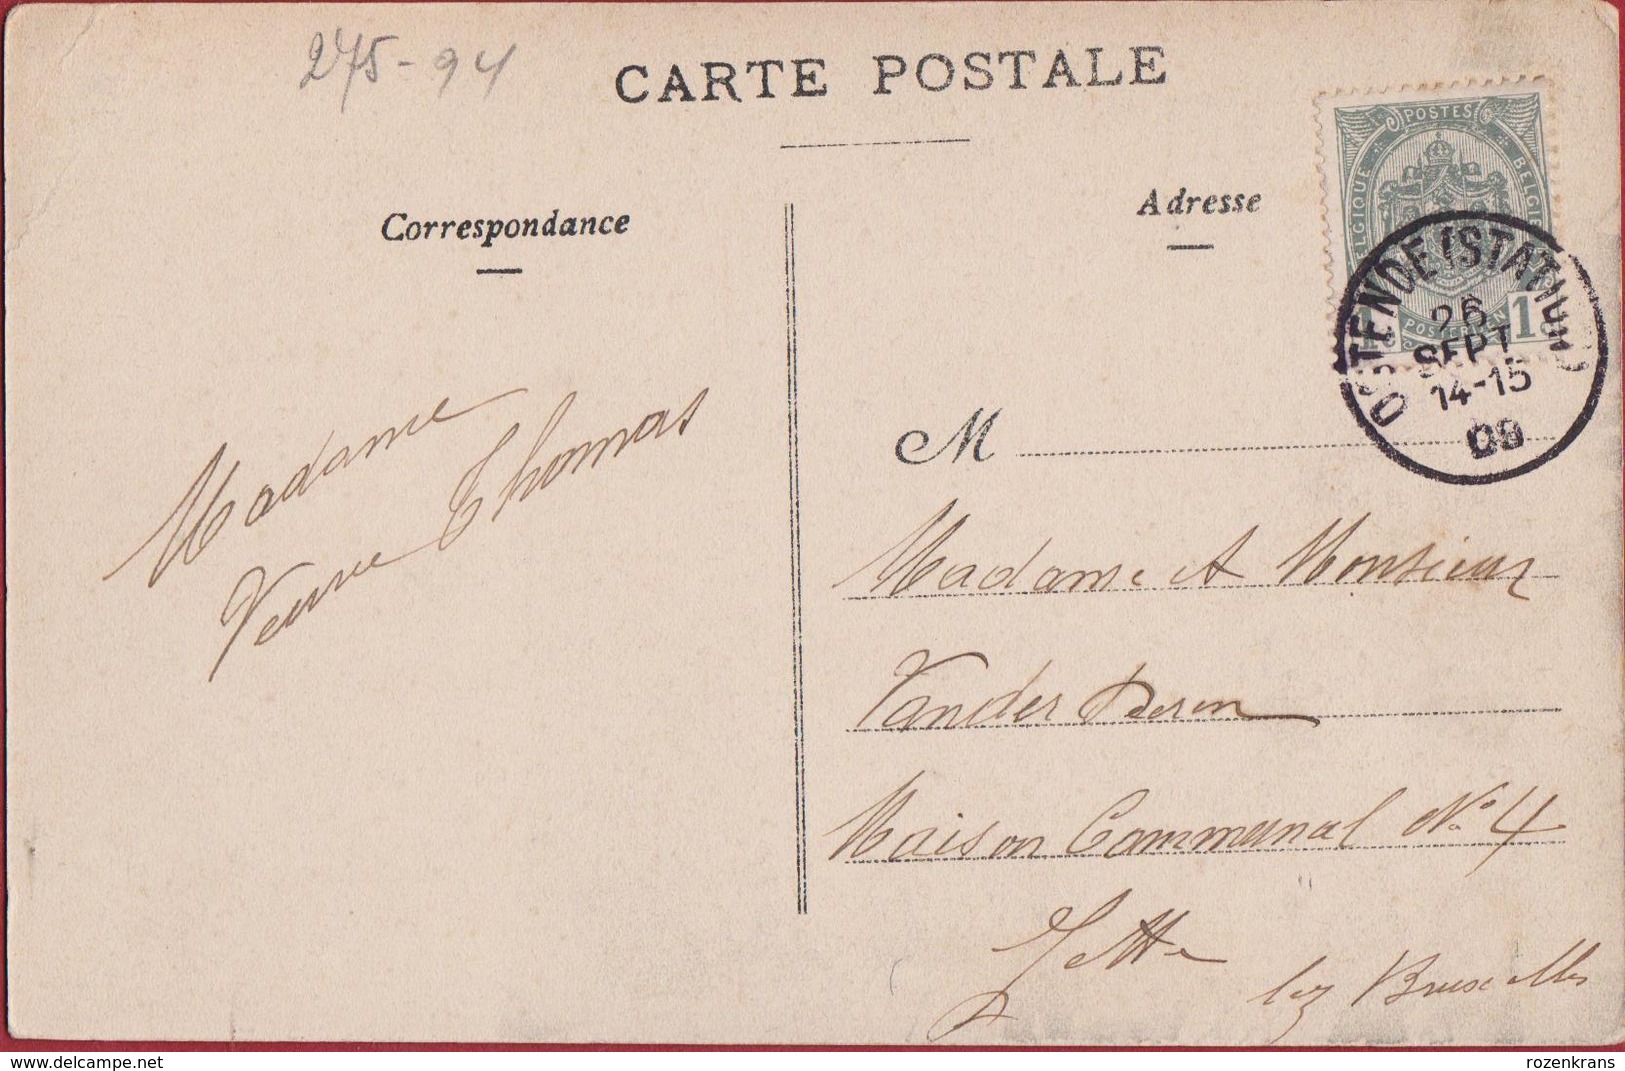 275-94
CARTE POSTALE
Correspondance
Adresse
POSTES
BELGIQUE
BELGIE
POSTERIJEN
1
OSTENDE (STATION)
26
SEPT
14-15
08
Madame
Veuve Thomas
M
Madame et Monsieur
Vander
Maison Communal No 4
Jette
lez Bruxelles
© delcampe.net
rozenkrans